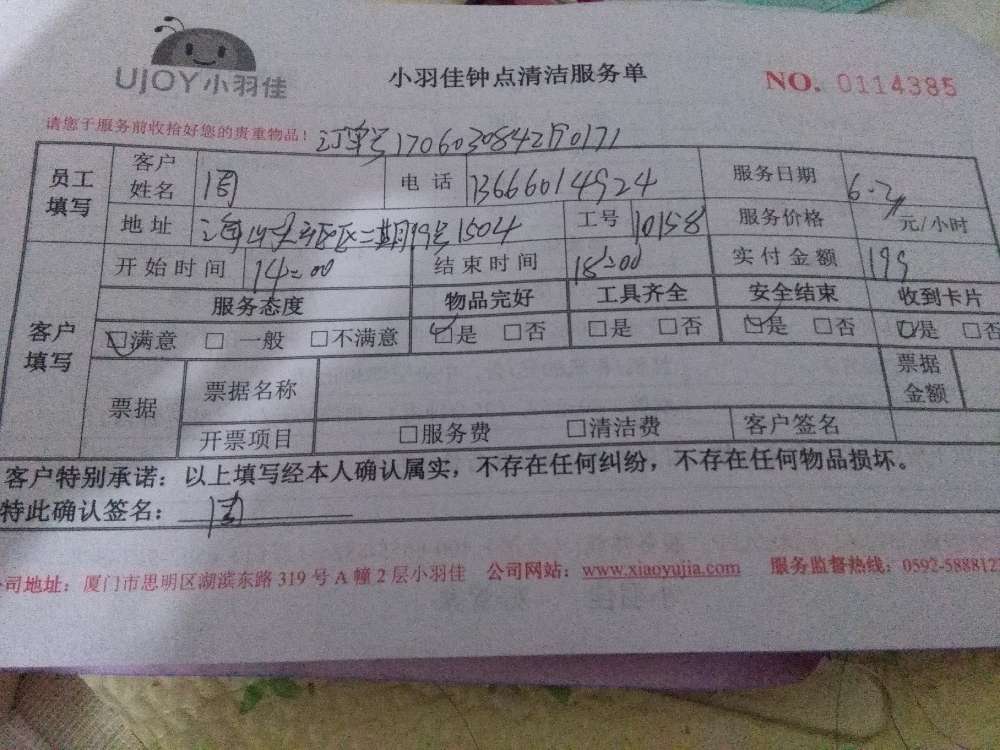 UJOY小羽佳
小羽佳钟点清洁服务单
NO. 0114385
请您于服务前收拾好您的贵重物品！
订单号
员工填写 客户姓名 周 电话 13666014924 服务日期
地址 1504 工号 10158 服务价格 元/小时
客户填写 开始时间 14:00 结束时间 18:00 实付金额 199
服务态度 物品完好 工具齐全 安全结束 收到卡片
□满意 □一般 □不满意 □是 □否 □是 □否 □是 □否 □是 □否
票据 票据名称 票据金额
开票项目 □服务费 □清洁费 客户签名
客户特别承诺：以上填写经本人确认属实，不存在任何纠纷，不存在任何物品损坏。
特此确认签名： 周
司地址：厦门市思明区湖滨东路 319 号 A 幢 2 层小羽佳 公司网站：www.xiaoyujia.com 服务监督热线：0592-588812